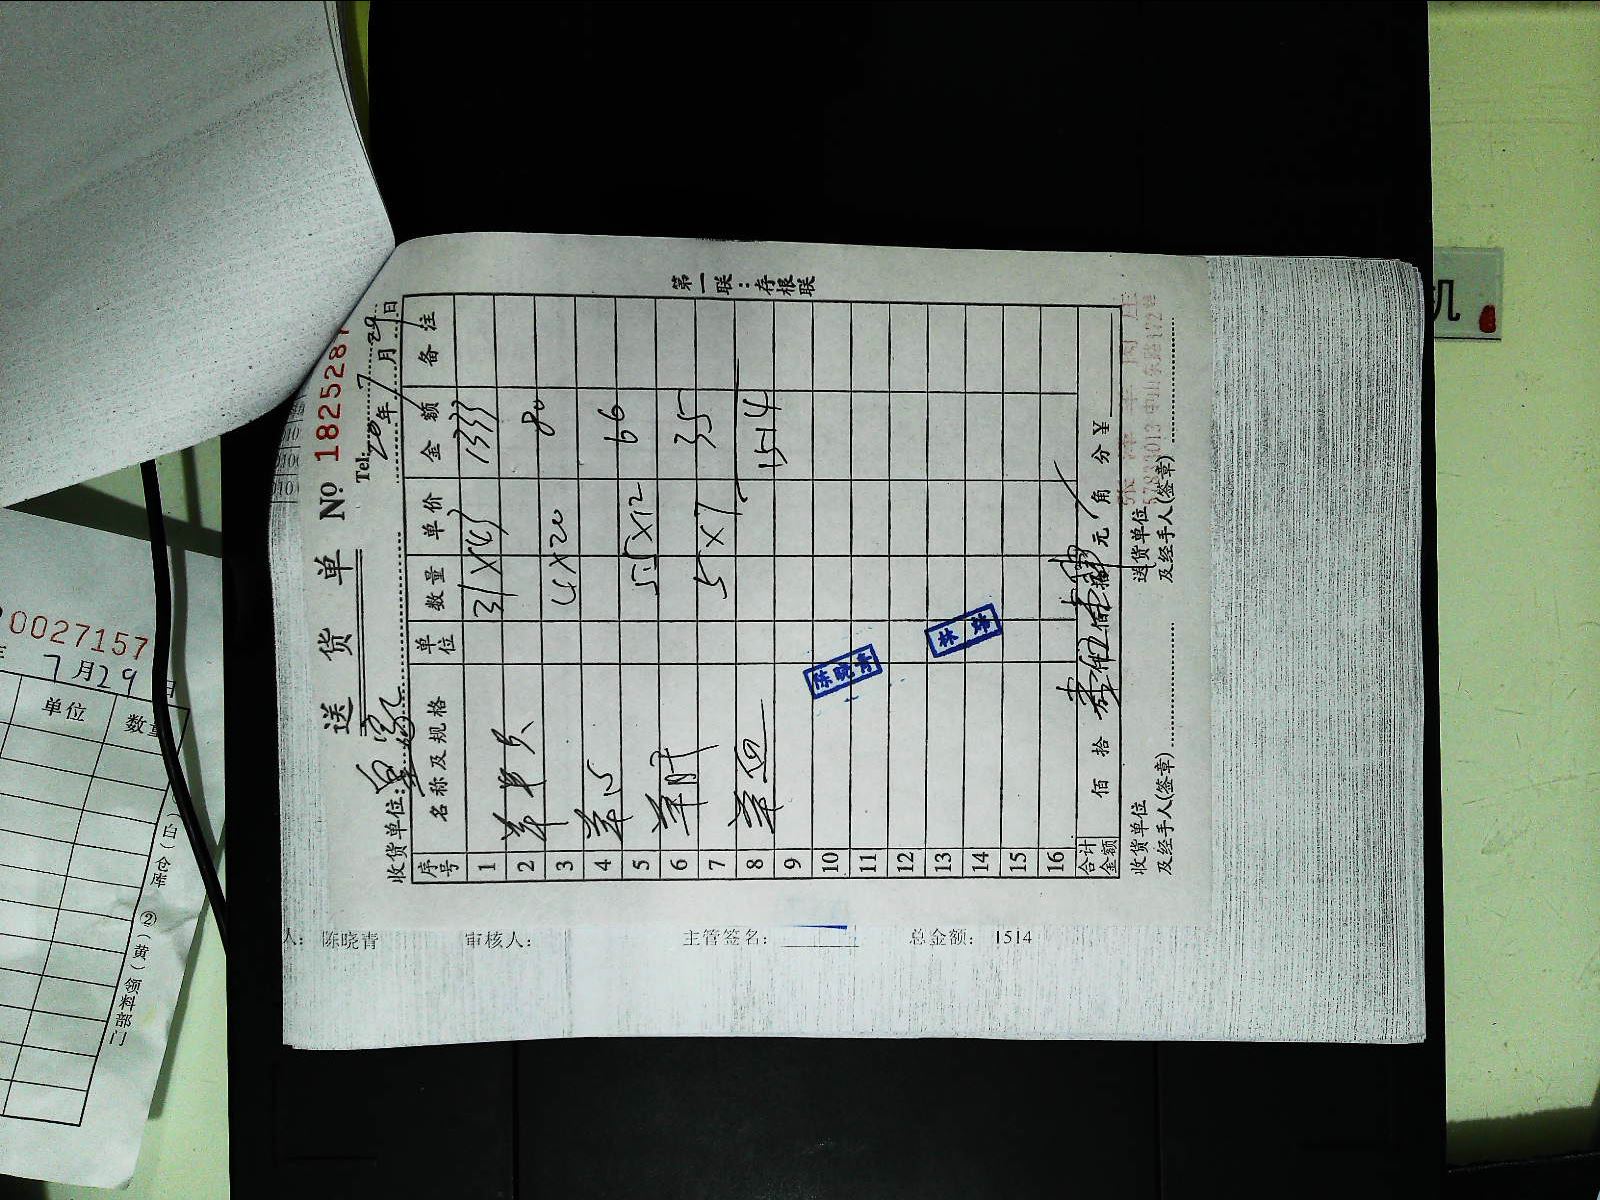 送 货 单 № 1825287
Tel:
收货单位: 皇家 20 年 7 月 29 日
序号 名称及规格 单位 数量 单价 金额 备注
1 31×43 1333
2 羊
3 4×20 80
4 羊心
5 5.5×12 66
6 羊肝 35
7 5×7
8 羊血 1514
9
10
11
12
13
14
15
16
合计金额 佰 拾 壹仟伍佰 元 角 分 ¥
收货单位及经手人(签章) 送货单位及经手人(签章)
第一联:存根联
陈晓青
羊肉
中山东路172号
人: 陈晓青 审核人: 主管签名: 总金额: 1514
0027157
7月29日
单位 数量
(白)仓库 ②(黄)领料部门
机